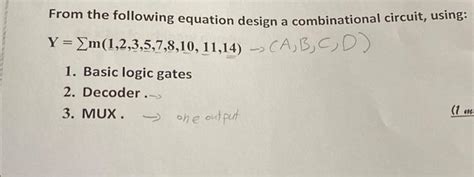 From the following equation design a combinational circuit, using:
Y = ∑m(1,2,3,5,7,8,10, 11,14) → (A,B,C,D)
1. Basic logic gates
2. Decoder . →
3. MUX . → one output
(1 m